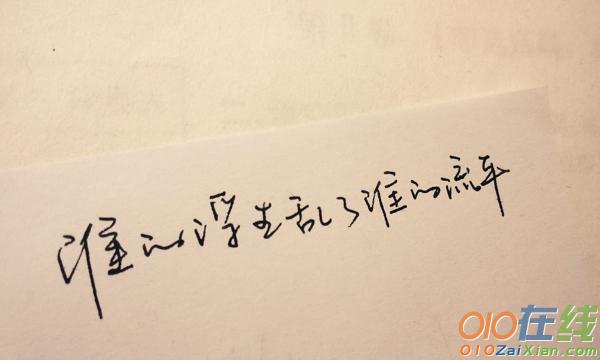 谁的浮生乱了谁的流年
010在线
010ZaiXian.com